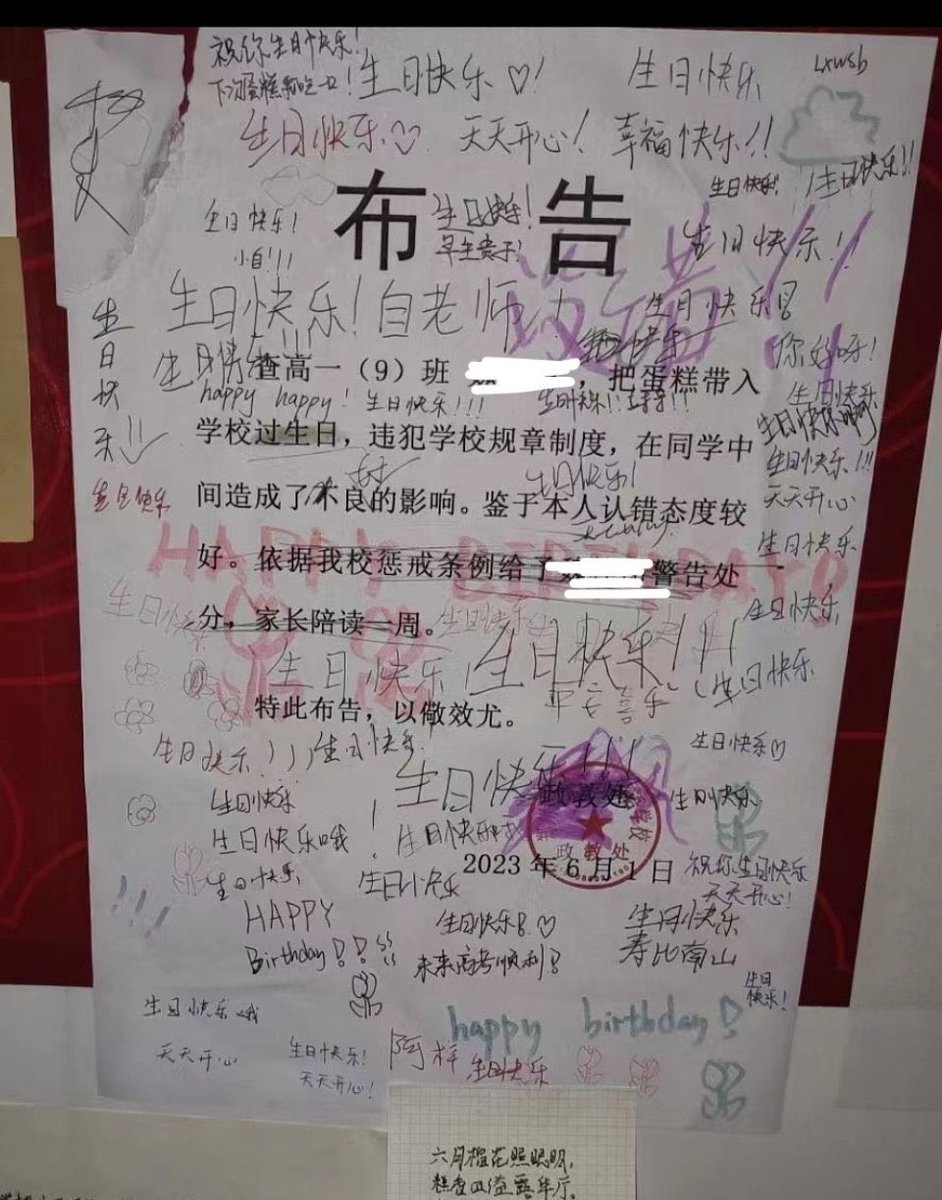 祝你生日快乐!
生日快乐♡!
生日快乐
Lxwsb
生日快乐♡
天天开心!
幸福快乐!!
生日快乐!
生日快乐!!
布告
生日快乐!
生日快乐!
早生贵子!
生日快乐!!
没错!!
生日快乐!
生日快乐
你好呀!
生日快乐!!!
生日快乐
查高一（9）班 ，把蛋糕带入
happy happy! 生日快乐!!!
生日快乐
学校过生日，违犯学校规章制度，在同学中
生日快乐!!!
生日快乐!
天天开心
间造成了不良的影响。鉴于本人认错态度较
生日快乐
生日快乐
HAPPY BIRTHDAY
好。依据我校惩戒条例给予 警告处
生日快乐
生日快乐
生日快乐
分，家长陪读一周。
生日快乐!
生日快乐!!!
平安喜乐
生日快乐
特此布告，以儆效尤。
生日快乐!!!
生日快乐
生日快乐♡
生日快乐!!!
生日快乐
政教处
生日快乐
学校
政教处
生日快乐哦
生日快乐
2023 年 6 月 1 日
祝你生日快乐
天天开心!
生日快乐
生日快乐
HAPPY
Birthday!!
生日快乐!♡
未来高考顺利!
生日快乐
寿比南山
生日
快乐!
生日快乐哦
happy birthday!
天天开心
生日快乐!
天天开心!
生日快乐
六月榴花照眼明,